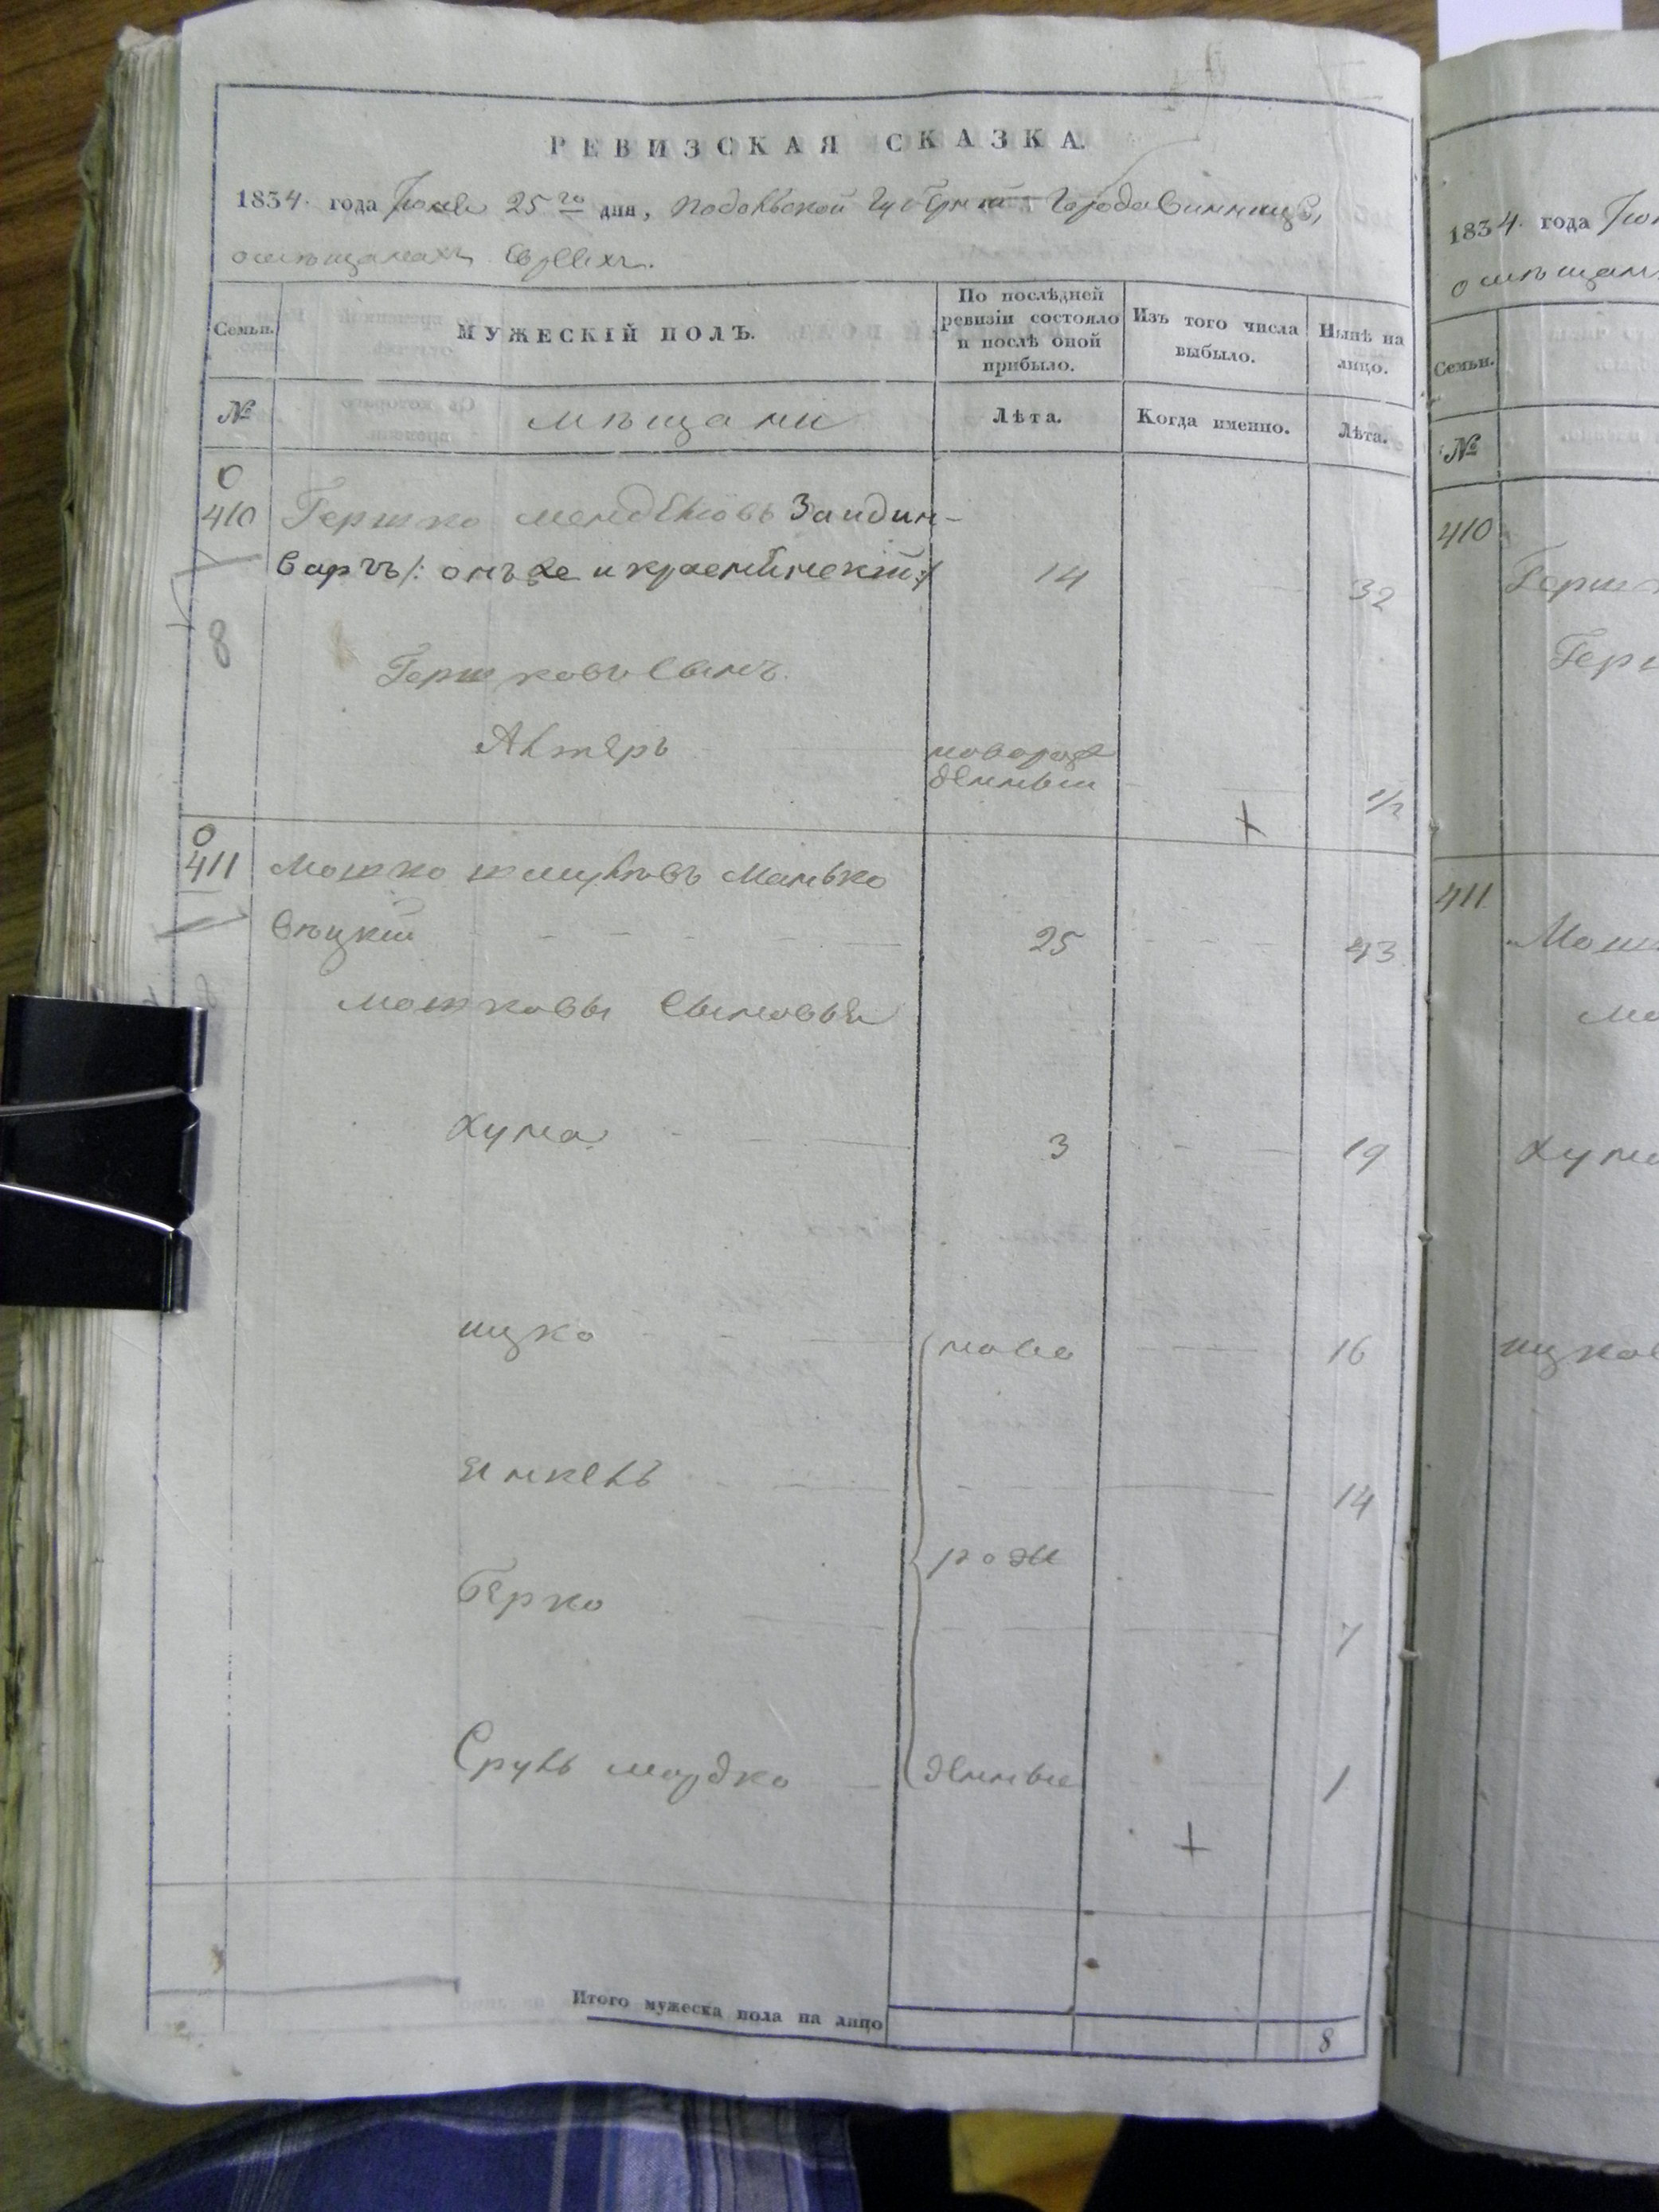 РЕВИЗСКАЯ СКАЗКА.
1834. года Іюня 25го дня, Подольской Губерніи Города Винницы,
о мѣщанахъ Евреяхъ.
Семьи.
МУЖЕСКІЙ ПОЛЪ.
По послѣдней ревизіи состояло и послѣ оной прибыло.
Изъ того числа выбыло.
Нынѣ на лицо.
№
Мѣщане
Лѣта.
Когда именно.
Лѣта.
0
410 Гершко Менделіовъ Зайдин-
варгъ /: онъ же и 14 32
8
Гершковъ Сынъ
Алтеръ новорож
денный 1/2
0
411 Мошко Шмулiовъ Манько
вѣцкій 25 43
Мошковы Сыновья
Хуна 3 19
Ицко ново 16
Янкель 14
рож
Берко 7
Сруль Мордко денные 1
Итого мужеска пола на лицо 8
1834. года
о мѣщан
Семьи.
№
410
Герш
411
Мош
Хуна
Ицков